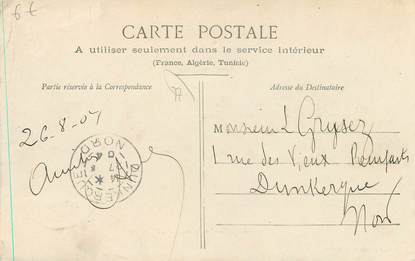 6€
CARTE POSTALE
A utiliser seulement dans le service intérieur
(France, Algérie, Tunisie)
Partie réservée à la Correspondance
Adresse du Destinataire
26-8-07
DUNKERQUE
NORD
Monsieur L Grysez
1 rue des Vieux Remparts
Dunkerque
Nord